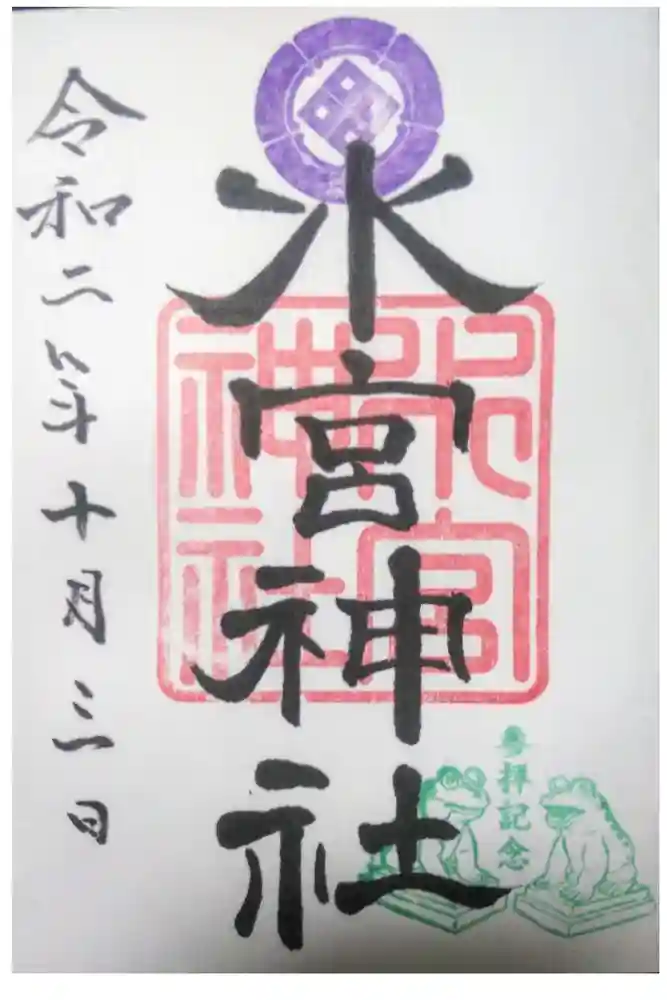 参拝記念
水宮神社
水宮
神社
令和二年十月三日